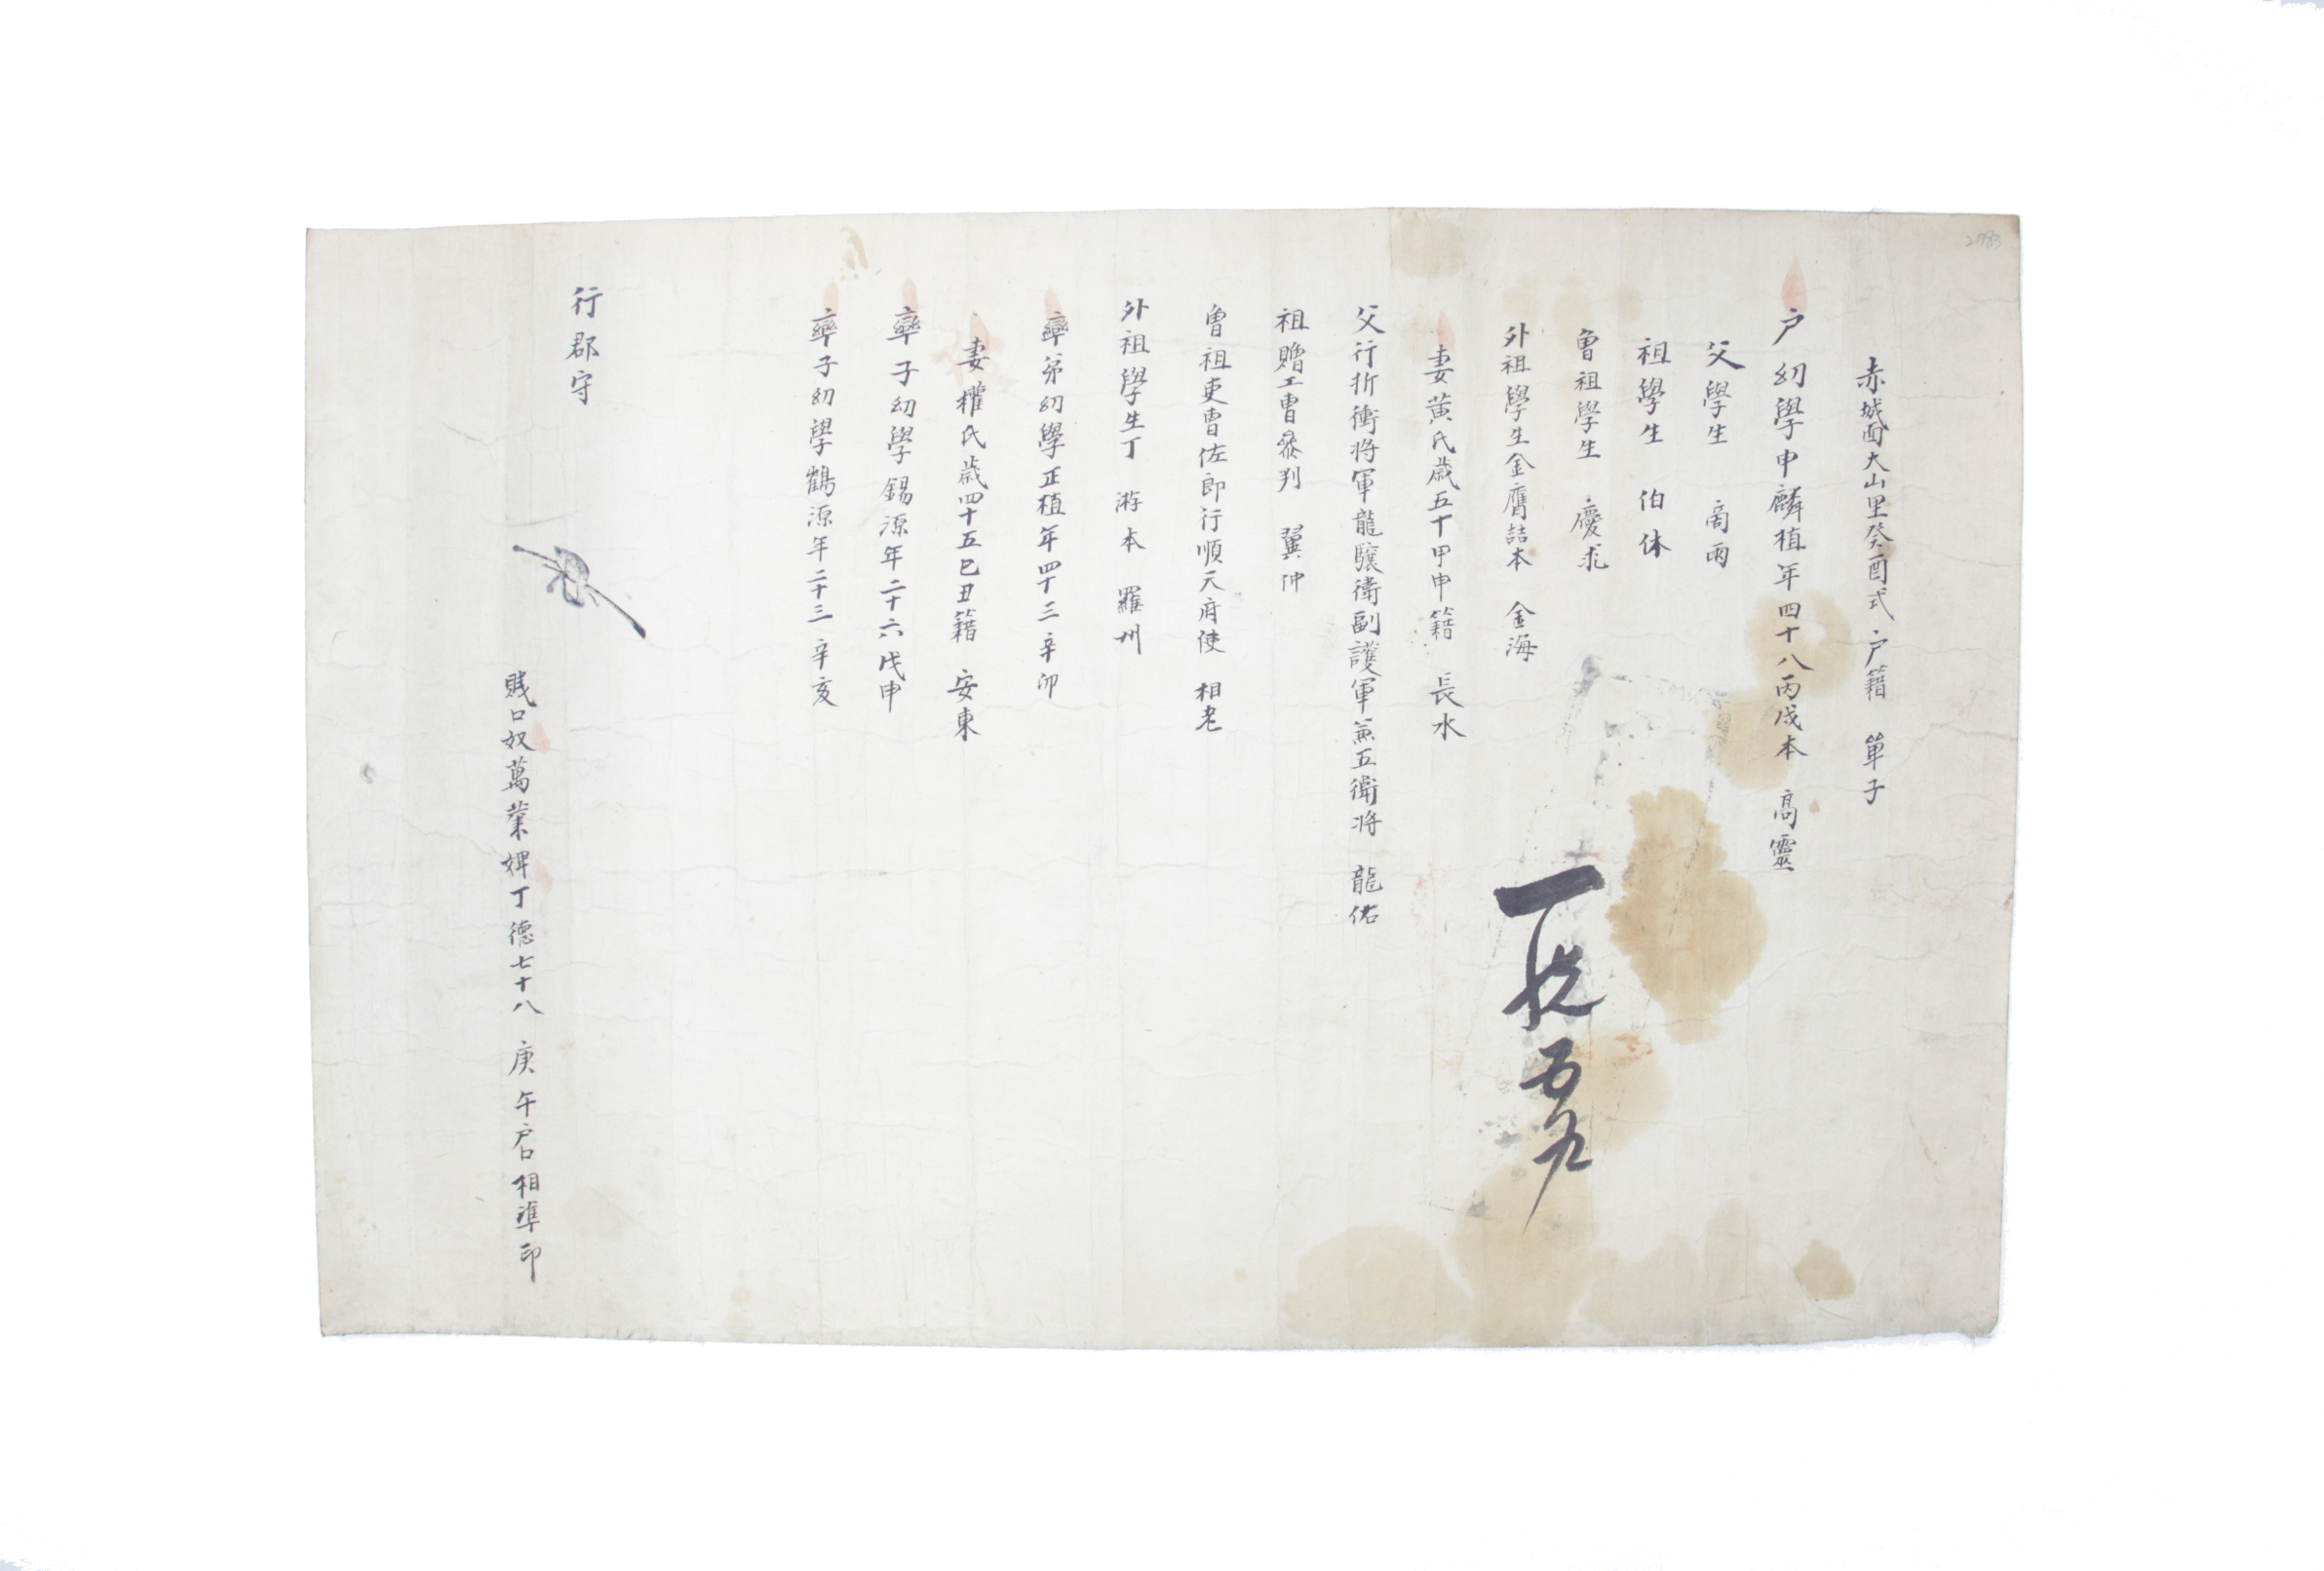 2783
赤城面大山里癸酉式 户籍 單子
户 幼學申麟植年四十八丙戌本 高靈
父學生 啇雨
祖學生 伯休
曾祖學生 慶求
外祖學生金膺喆本 金海
妻黃氏歲五十甲申籍 長水
父行折衝將軍龍驤衛副護軍兼五衛將 龍佑
祖贈工曹叅判 翼仲
曾祖吏曹佐郎行順天府使 相老
外祖學生丁 游本 羅州
率弟幼學正植年四十三辛卯
妻權氏歲四十五己丑籍 安東
率子幼學錫源年二十六戊申
率子幼學鶴源年二十三辛亥
行郡守
賤口奴萬業婢丁德七十八 庚午户口相準印
一統 五九